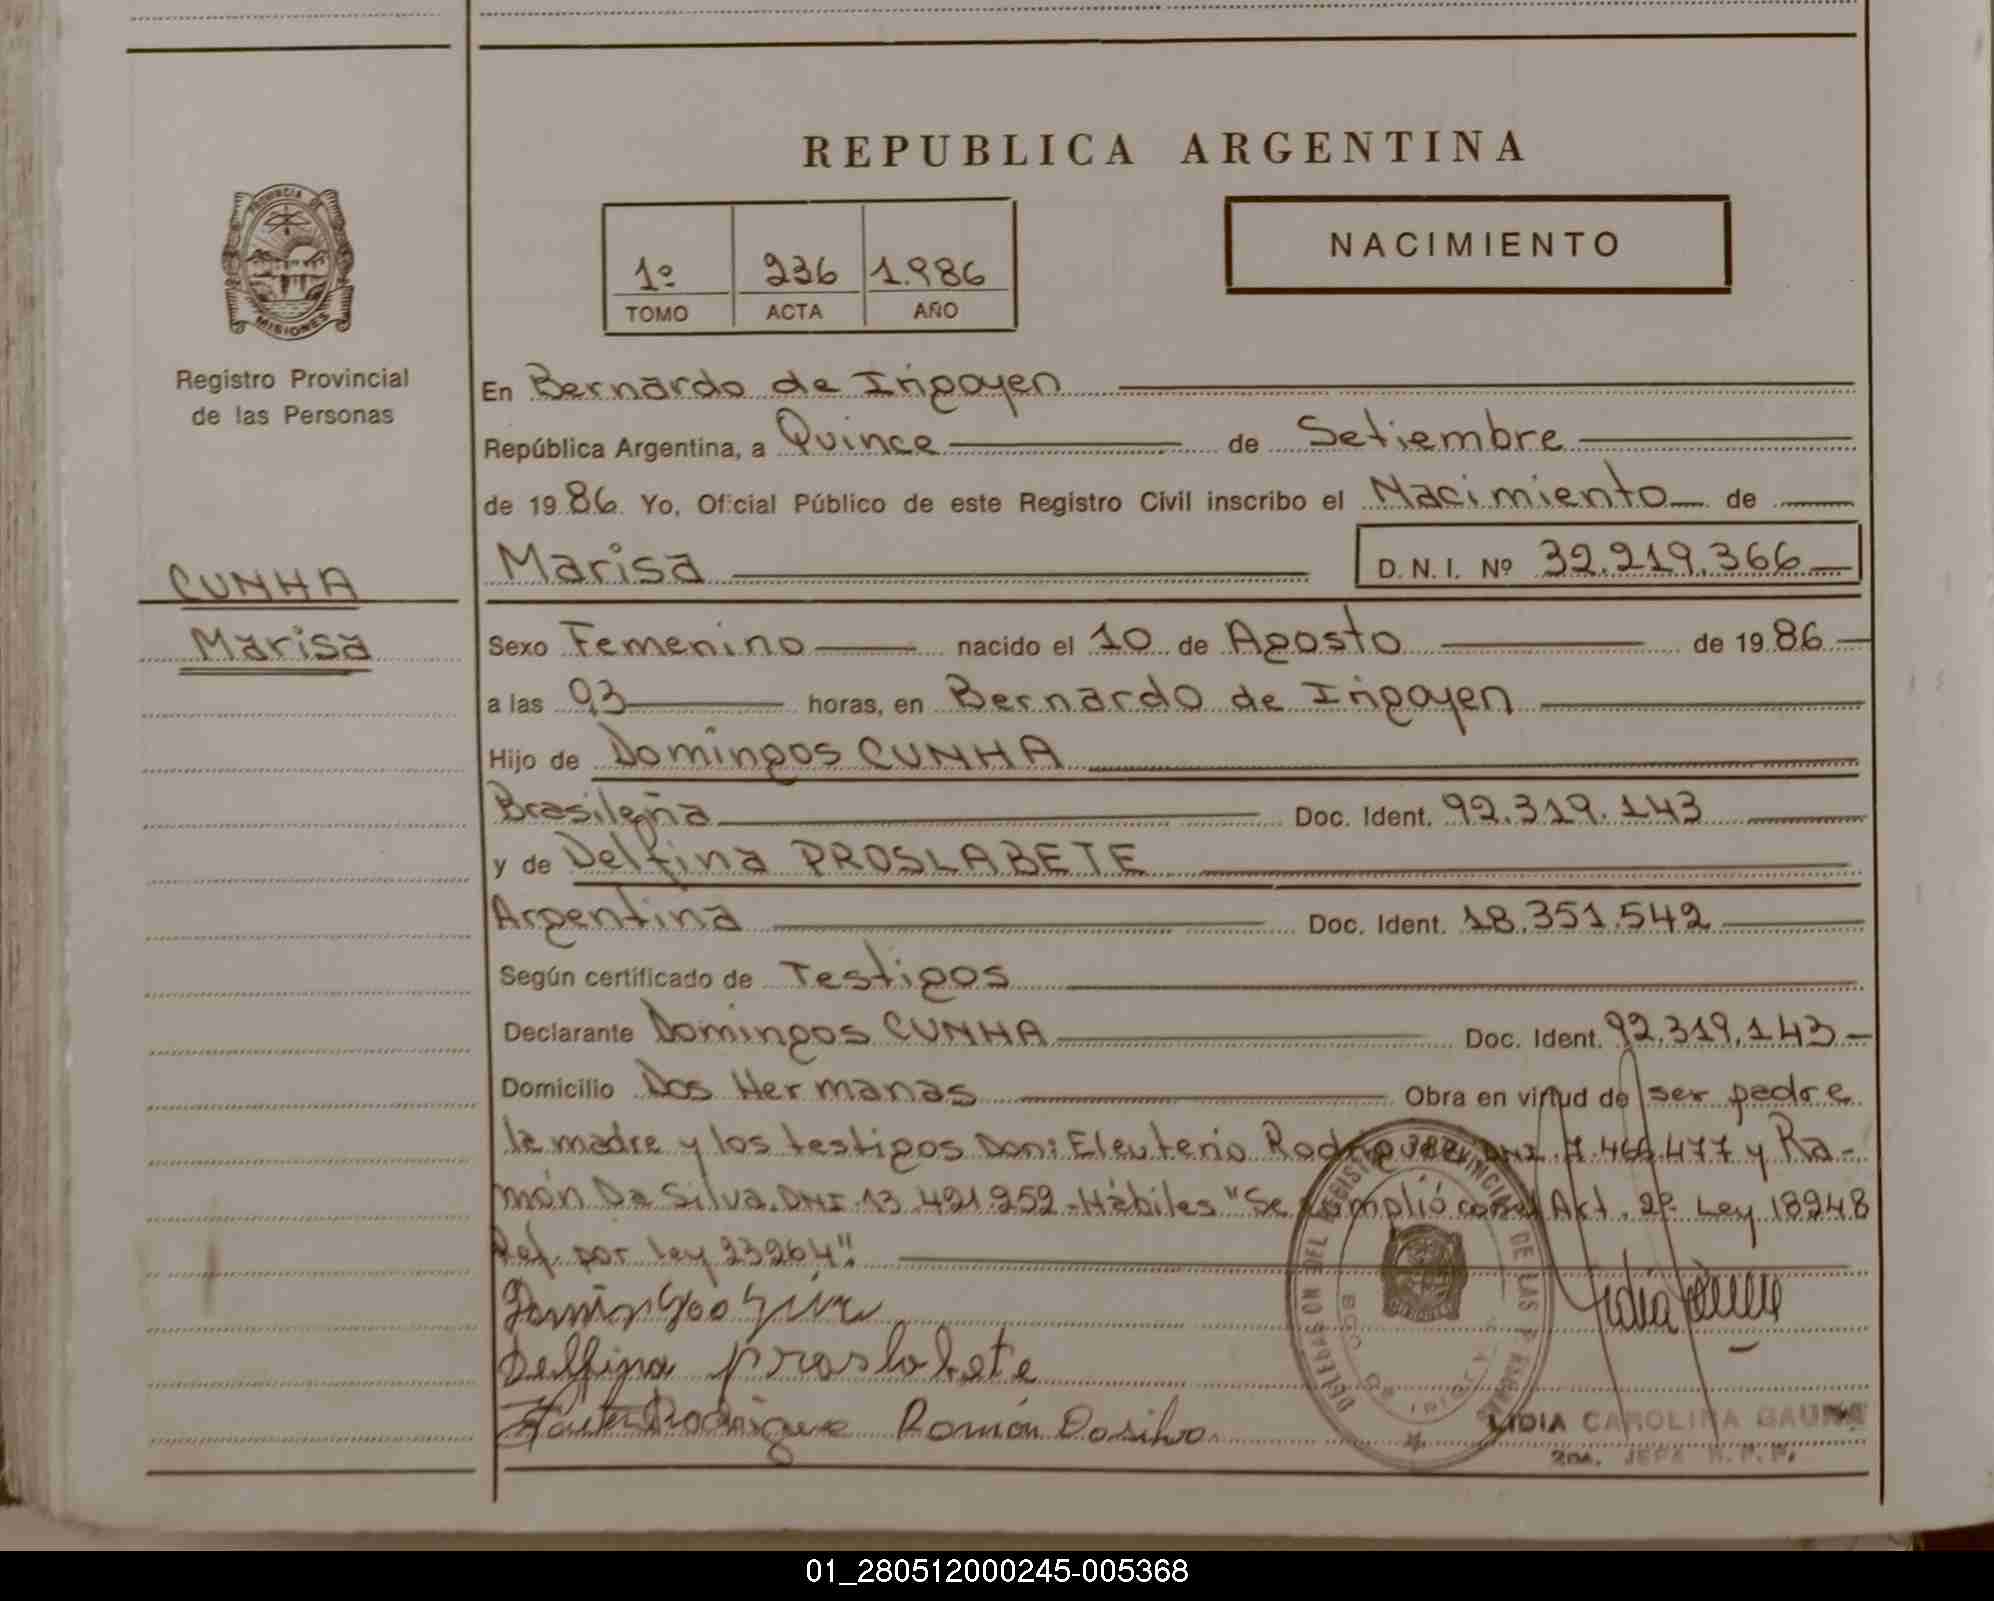 REPUBLICA ARGENTINA
PROVINCIA DE
MISIONES
Registro Provincial
de las Personas
CUNHA
Marisa
1º 236 1.986
TOMO ACTA AÑO
NACIMIENTO
En Bernardo de Irigoyen
República Argentina, a Quince de Setiembre
de 19 86 Yo, Oficial Público de este Registro Civil inscribo el Nacimiento de
Marisa D.N.I. Nº 32.219.366
Sexo Femenino nacido el 10 de Agosto de 19 86
a las 03 horas, en Bernardo de Irigoyen
Hijo de Domingos CUNHA
Brasileña Doc. Ident. 92.319.143
y de Delfina PROSLABETE
Argentina Doc. Ident. 18.351.542
Según certificado de Testigos
Declarante Domingos CUNHA Doc. Ident. 92.319.143
Domicilio Dos Hermanas Obra en virtud de ser padre
la madre y los testigos Don: Eleuterio Rodriguez DNI. 7.466.477 y Ra-
món Da Silva. DNI. 13.491.952 - Hábiles "Se cumplió con el Art. 2º Ley 18248
Ref. por ley 23264".
Delfina proslabete
Rodrigue Ramón Dasilva
DELEGACION DEL REGISTRO PROVINCIAL DE LAS PERSONAS
BDO. DE IRIGOYEN
LIDIA CAROLINA GAUNA
2DA. JEFA R.P.P.
01_280512000245-005368